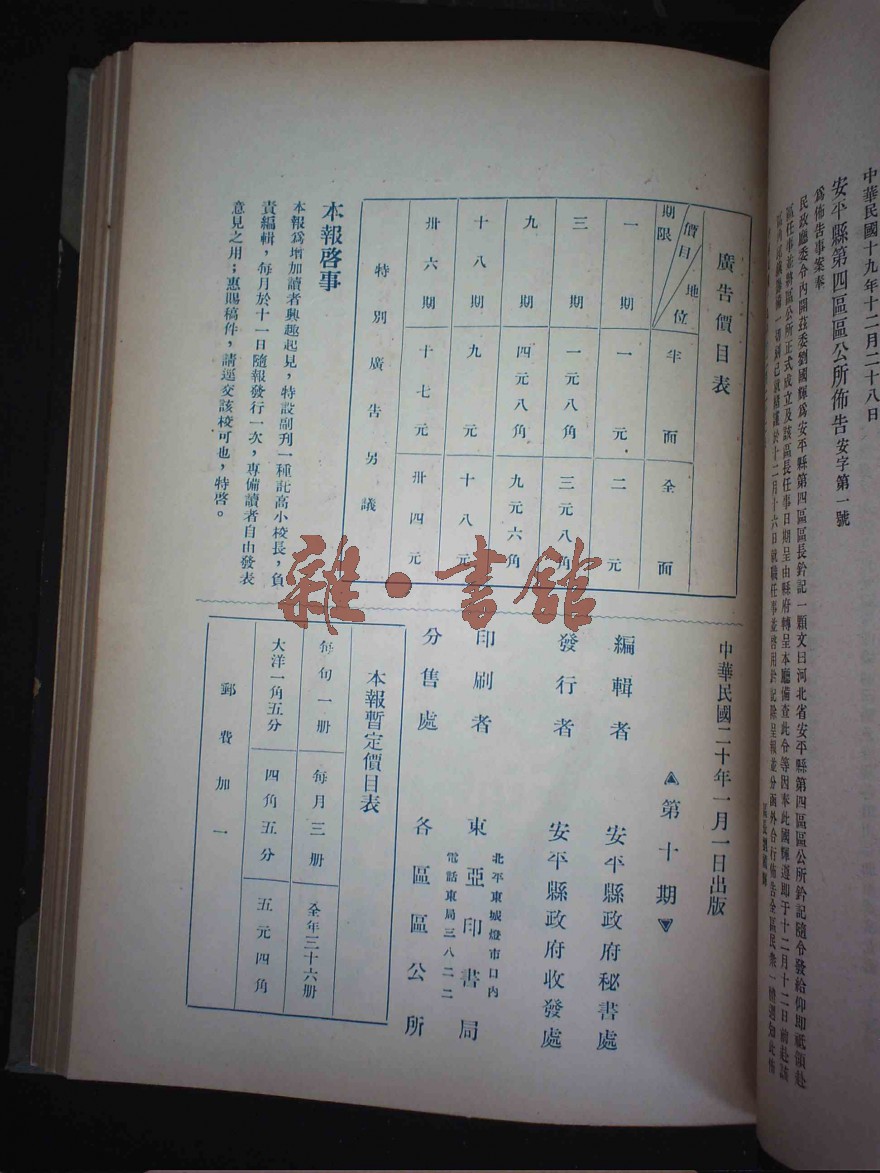 中華民國十九年十二月二十八日
安平縣第四區區公所佈告安字第一號
爲佈告事案奉
民政廳委令內開茲委劉國輝爲安平縣第四區區長鈐記一顆文曰河北省安平縣第四區區公所鈐記隨令發給仰即祗領赴
區任事並將區公所正式成立及該區長任事日期呈由縣府轉呈本廳備查此令等因奉此國輝遵即于十二月十二日前赴該
十二月十六日就職任事並啓用鈐記除呈報並分函外合行佈告全區民衆一體
廣告價目表
價目 地位 期限
半面
全面
一期 一元 二元
三期 一元八角 三元八角
九期 四元八角 九元六角
十八期 九元 十八元
卅六期 十七元 卅四元
特別廣告另議
本報啓事
本報爲增加讀者興趣起見，特設副刋一種託高小校長，負
責編輯，每月於十一日隨報發行一次，專備讀者自由發表
意見之用；惠賜稿件，請逕交該校可也，特啓。
中華民國二十年一月一日出版
第十期
編輯者 安平縣政府秘書處
發行者 安平縣政府收發處
印刷者 東亞印書局
北平東城燈市口內
電話東局三八二二
分售處 各區區公所
本報暫定價目表
每旬一册 每月三册 全年三十六册
大洋一角五分 四角五分 五元四角
郵費加一
雜·書館